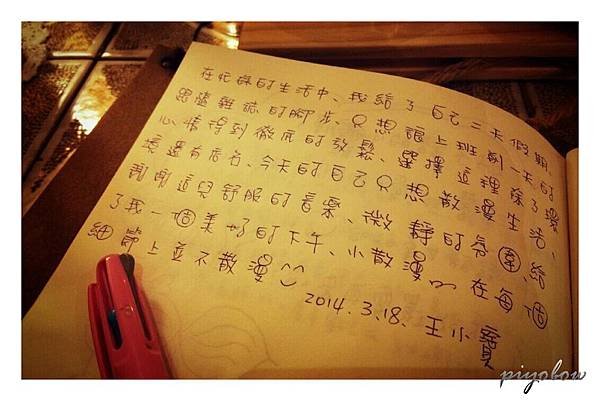 在忙碌的生活中、我給了自己二天假期、
跟隨雜誌的腳步、只想讓上班前一天的
心情得到徹底的放鬆、選擇這裡除了環
境還有店名、今天的自己只想散漫生活、
謝謝這兒舒服的音樂、微靜的氛圍、給
了我一個美好的下午、小散漫 在每一個
細節上並不散漫
2014.3.18、王小寶
piyobow